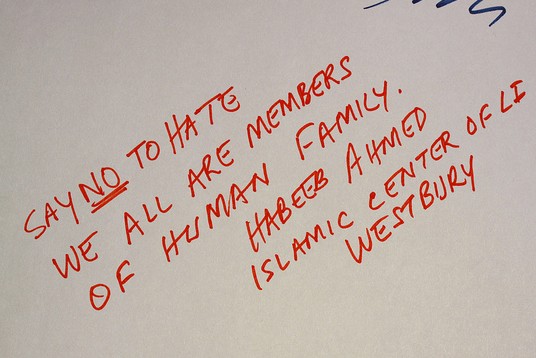 SAY NO TO HATE
WE ALL ARE MEMBERS
OF HUMAN FAMILY.
HABEEB AHMED
ISLAMIC CENTER OF LI
WESTBURY